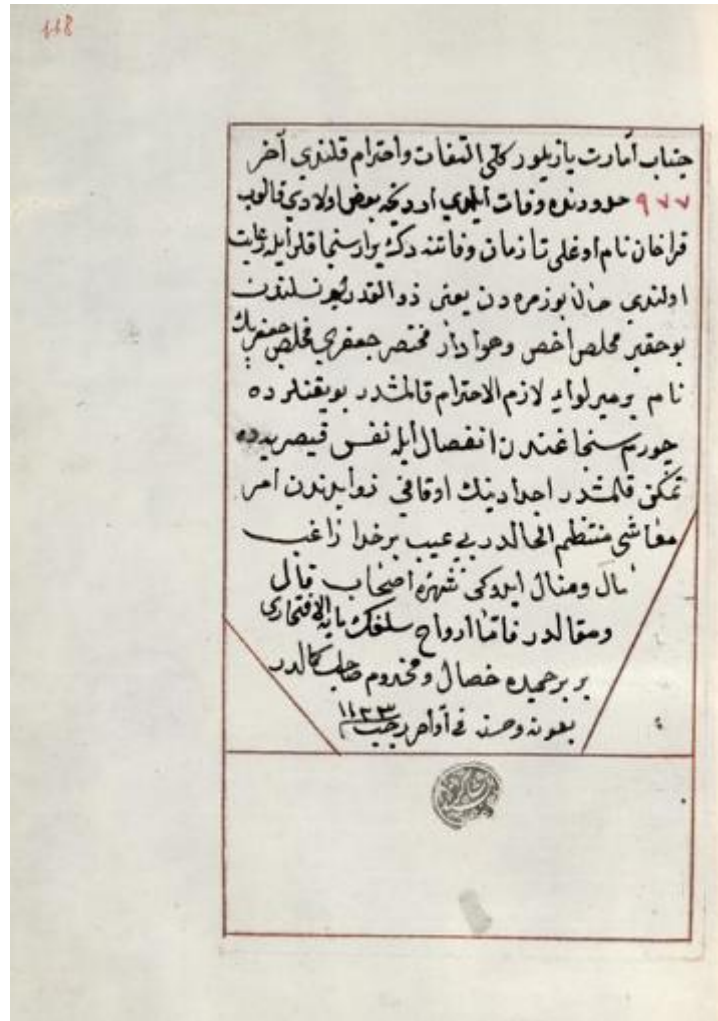 118
جناب آمارت یازیلور کلی التفات واحترام قلندی آخر
۹۷۷ حدودنده وفات ایلدی اردنجه بعض اولادی قالوب
قراخان نام اوغلی تا زمان وفاتنه دک برار سنجاقلر ایله رعایت
اولندی حالا بو زمره دن یعنی ذوالقدریه نسلندن
بو حقیر مخلص اخص وهوادار مختصر جعفری مخلص جعفر بك
نام بر میرلواء لازم الاحترام قالمشدر بو یقنلرده
چورم سنجاغندن انفصال ایله نفس قیصریه ده
تمکن قلمشدر اجدادینك اوقافی زوایدندن امر
معاشی منتظم الحالدر بی عیب برخدا راغب
مال ومنال ایدوکی شهره اصحاب قال
ومقالدر فامّا ارواح سلفك مایه الافتخاری
بر بر حمیده خصال ومخدوم صاحب کمالدر
بعونه وحسنه فی أواخر رجب ۱۱۳۳